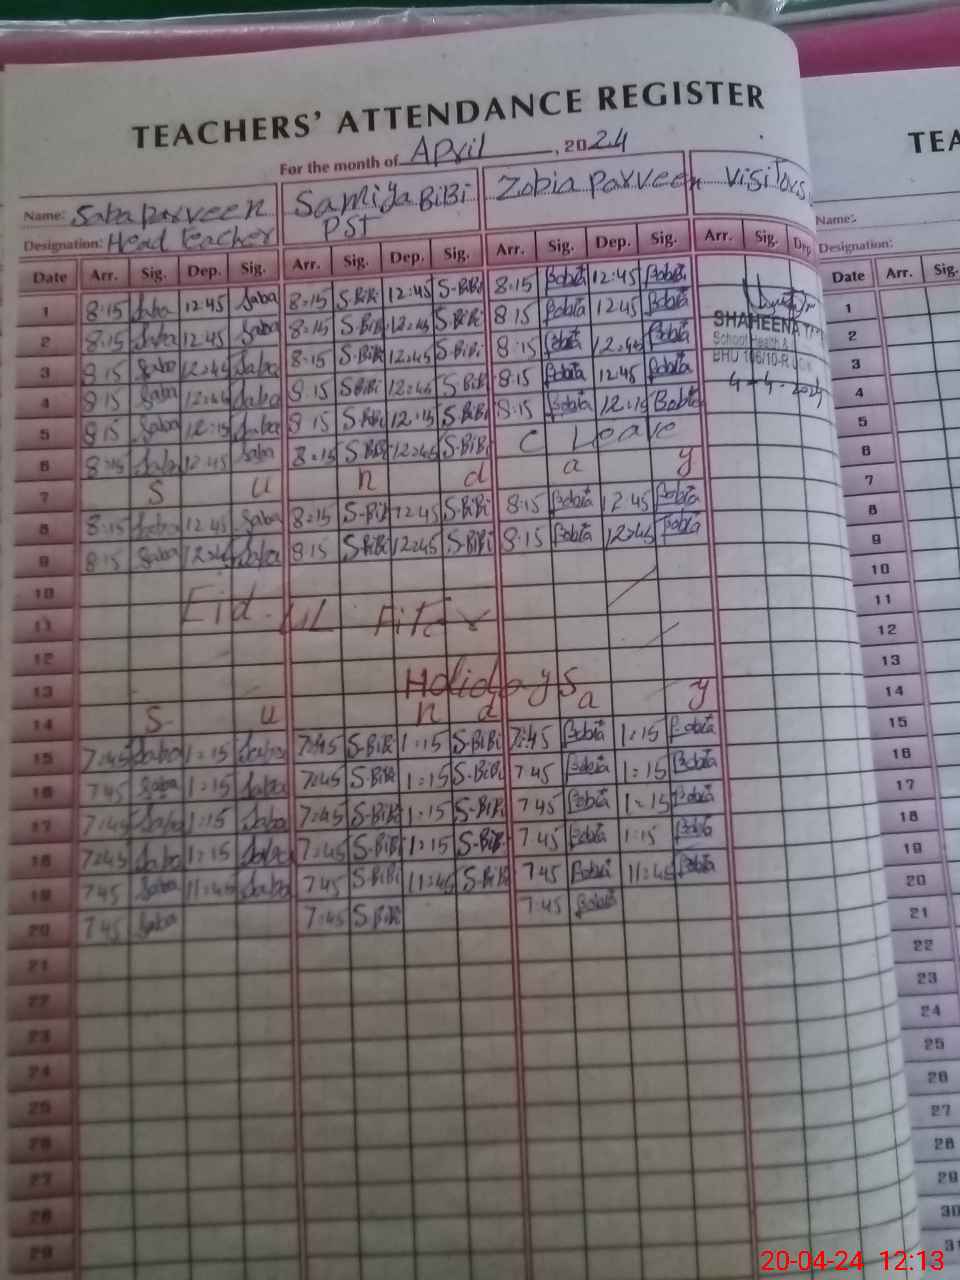 TEACHERS' ATTENDANCE REGISTER
For the month of April, 2024
Name: Saba Parveen Samiya BiBi Zobia Parveen Visitors
Designation: Head teacher PST
Date Arr. Sig. Dep. Sig. Arr. Sig. Dep. Sig. Arr. Sig. Dep. Sig. Arr. Sig. Dep.
1 8:15 Saba 12:45 Saba 8:15 S-BiBi 12:45 S-BiBi 8:15 Zobia 12:45 Zobia
2 8:15 Saba 12:45 Saba 8:15 S-BiBi 12:45 S-BiBi 8:15 Zobia 12:45 Zobia
SHAHEENA
3 8:15 Saba 12:45 Saba 8:15 S-BiBi 12:45 S-BiBi 8:15 Zobia 12:45 Zobia
School Health &
BHU 106/10-R
4 8:15 Saba 12:45 Saba 8:15 S-BiBi 12:45 S-BiBi 8:15 Zobia 12:45 Zobia
4-4-2024
5 8:15 Saba 12:15 Saba 8:15 S-BiBi 12:15 S-BiBi 8:15 Zobia 12:15 Zobia
6 8:15 Saba 12:45 Saba 8:15 S-BiBi 12:45 S-BiBi C Leave
7 S u n d a y
8 8:15 Saba 12:45 Saba 8:15 S-BiBi 12:45 S-BiBi 8:15 Zobia 12:45 Zobia
9 8:15 Saba 12:45 Saba 8:15 S-BiBi 12:45 S-BiBi 8:15 Zobia 12:45 Zobia
10
11 Eid-UL-Fiter
12
13 Holidays
14 S u n d a y
15 7:45 Saba 1:15 Saba 7:45 S-BiBi 1:15 S-BiBi 7:45 Zobia 1:15 Zobia
16 7:45 Saba 1:15 Saba 7:45 S-BiBi 1:15 S-BiBi 7:45 Zobia 1:15 Zobia
17 7:45 Saba 1:15 Saba 7:45 S-BiBi 1:15 S-BiBi 7:45 Zobia 1:15 Zobia
18 7:45 Saba 1:15 Saba 7:45 S-BiBi 1:15 S-BiBi 7:45 Zobia 1:15 Zobia
19 7:45 Saba 11:45 Saba 7:45 S-BiBi 11:45 S-BiBi 7:45 Zobia 11:45 Zobia
20 7:45 Saba 7:45 S-BiBi 7:45 Zobia
21
22
23
24
25
26
27
28
29
TEA
Name:
Designation:
Date Arr. Sig.
1
2
3
4
5
6
7
8
9
10
11
12
13
14
15
16
17
18
19
20
21
22
23
24
25
26
27
28
29
30
31
20-04-24 12:13